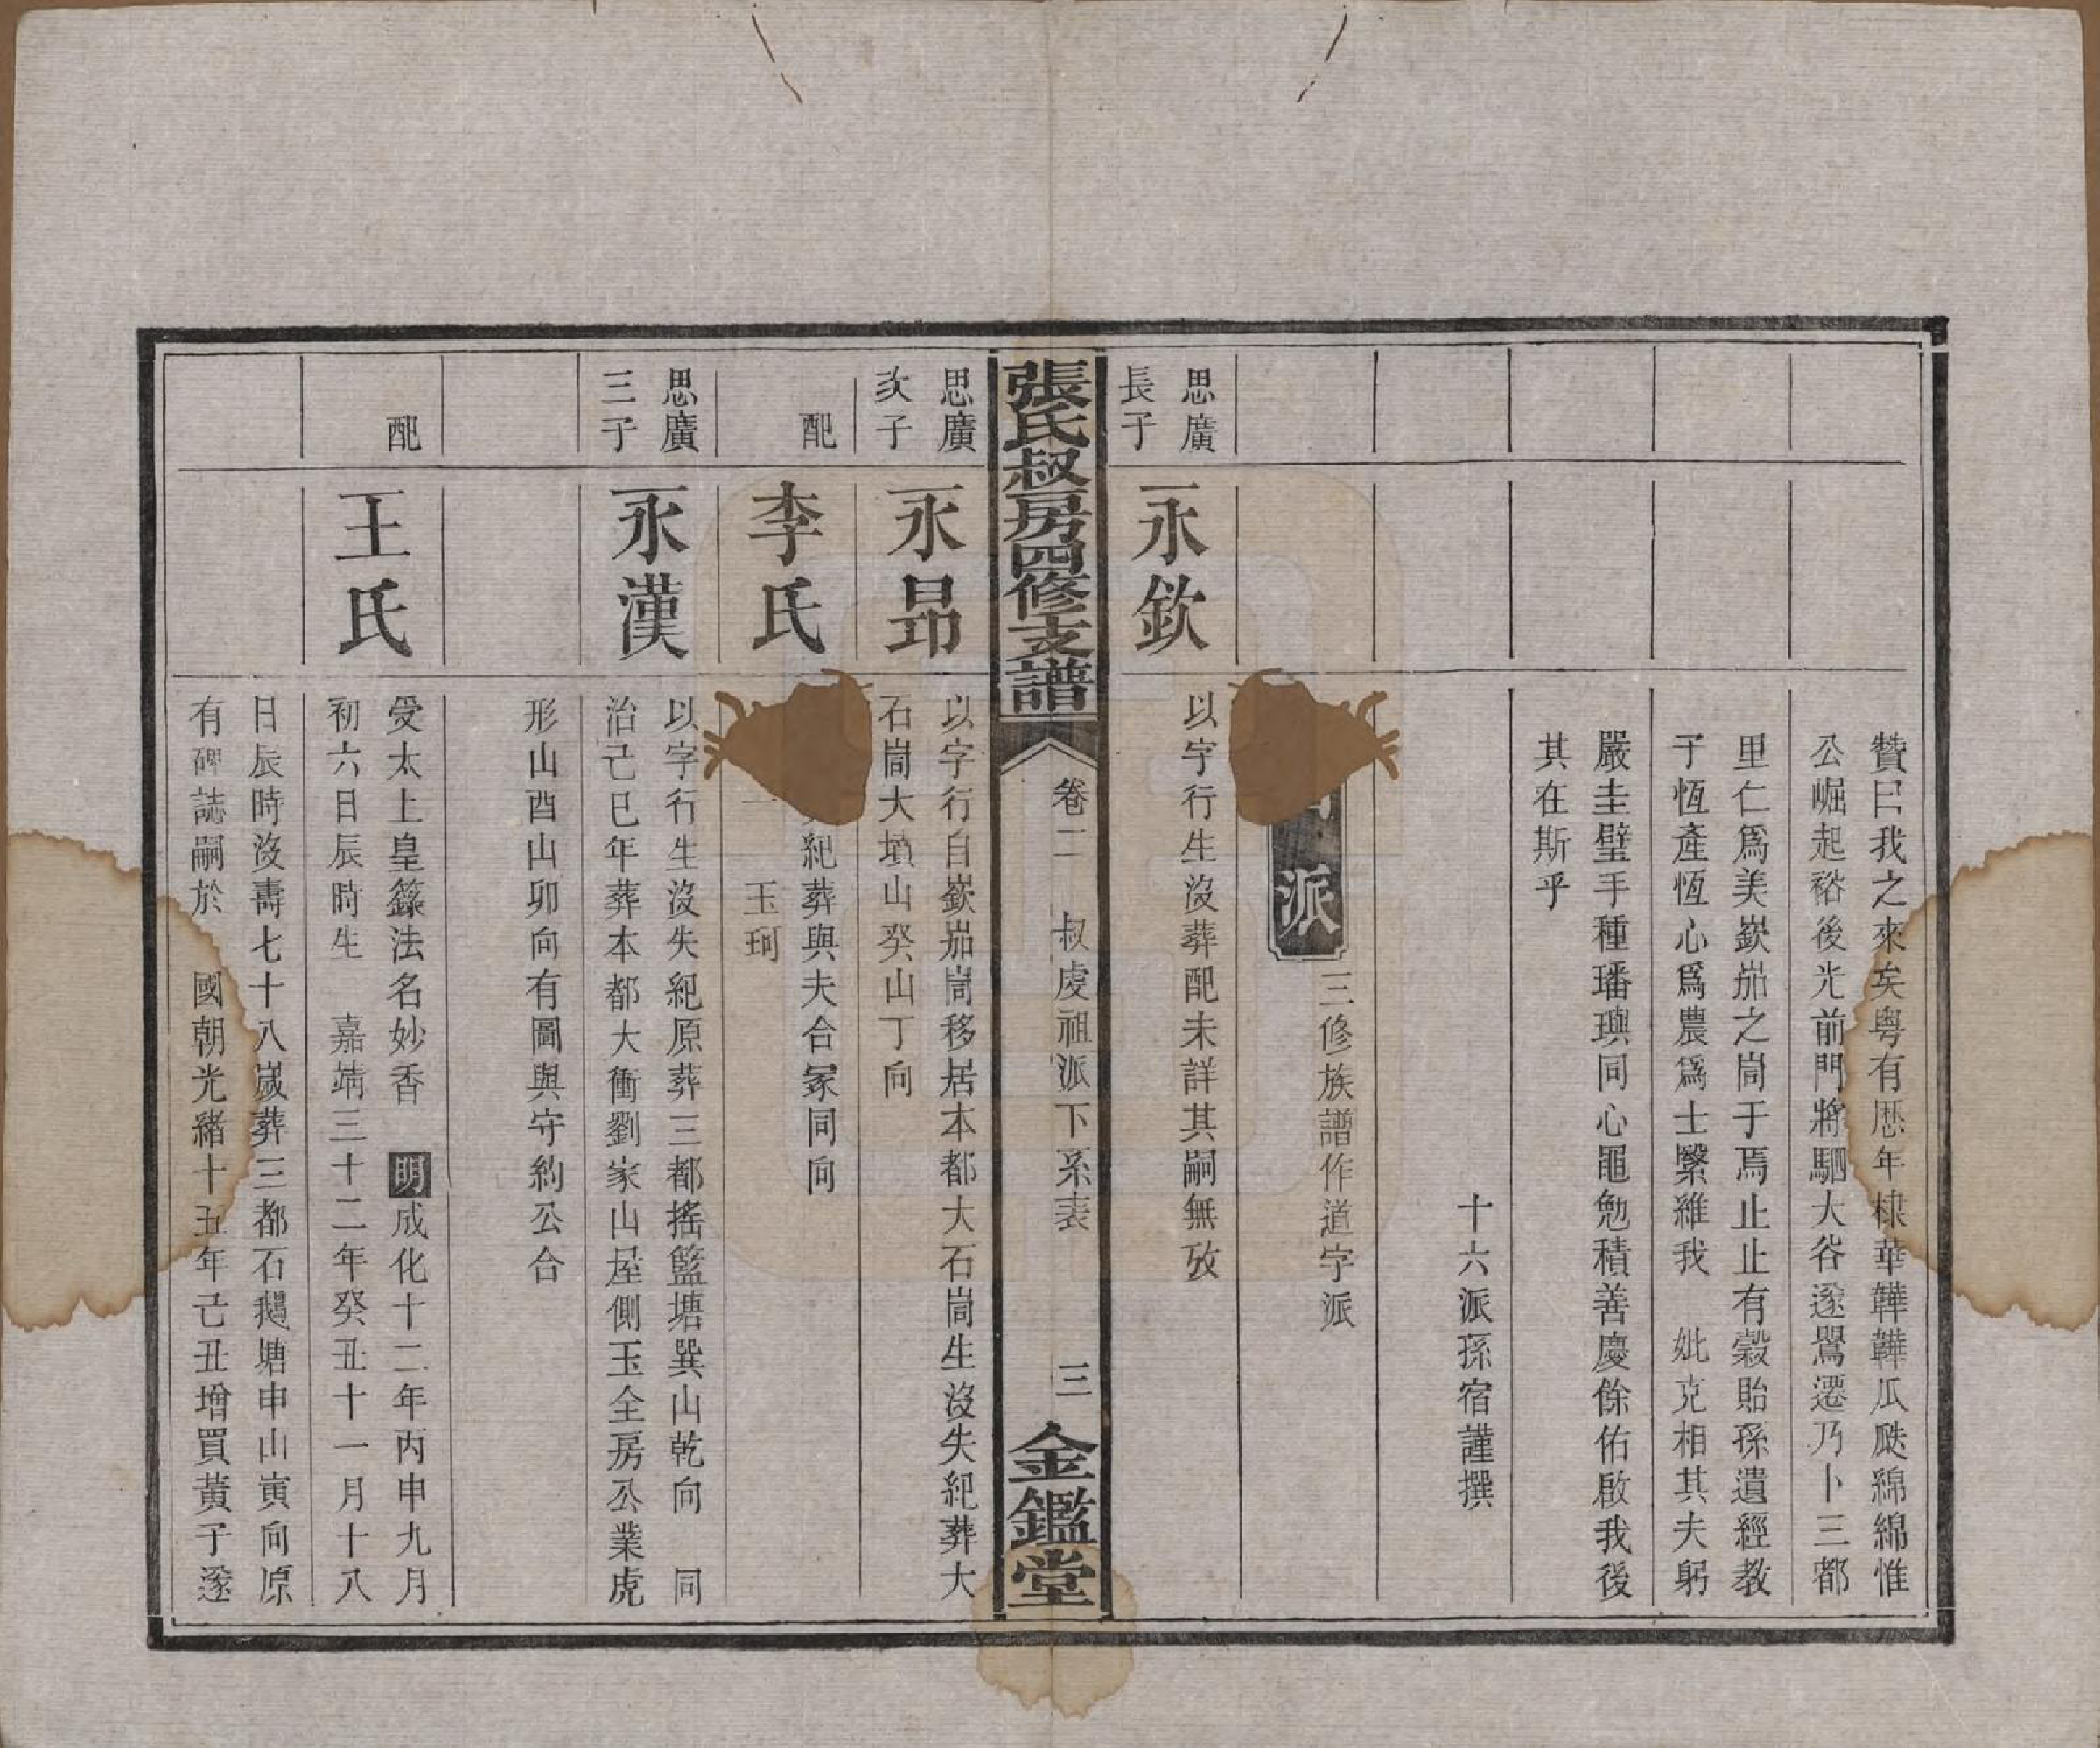 贊曰我之來矣粵有歷年棣華韡韡瓜瓞綿綿惟
公崛起裕後光前門將駟大谷遂鶯遷乃卜三都
里仁爲美嶔峁之峝于焉止止有穀貽孫遺經教
子恆產恆心爲農爲士繄維我 妣克相其夫躬
嚴圭璧手種璠璵同心黽勉積善慶餘佑啟我後
其在斯乎
十六派孫宿謹撰
派 三修族譜作道字派
思廣
長子
永欽
以字行生沒葬配未詳其嗣無攷
張氏叔房四修支譜 卷二 叔虔祖派下系表 三 金鑑堂
思廣
次子
永昂
以字行自嶔峁峝移居本都大石峝生沒失紀葬大
石峝大墳山癸山丁向
配
李氏
紀葬與夫合冢同向
一 玉珂
思廣
三子
永漢
以字行生沒失紀原葬三都搖籃塘巽山乾向 同
治己巳年葬本都大衝劉家山屋側玉全房公業虎
形山酉山卯向有圖與守約公合
配
王氏
受太上皇籙法名妙香 明成化十二年丙申九月
初六日辰時生 嘉靖三十二年癸丑十一月十八
日辰時沒壽七十八歲葬三都石鵝塘申山寅向原
有碑誌嗣於 國朝光緒十五年己丑增買黃子遂